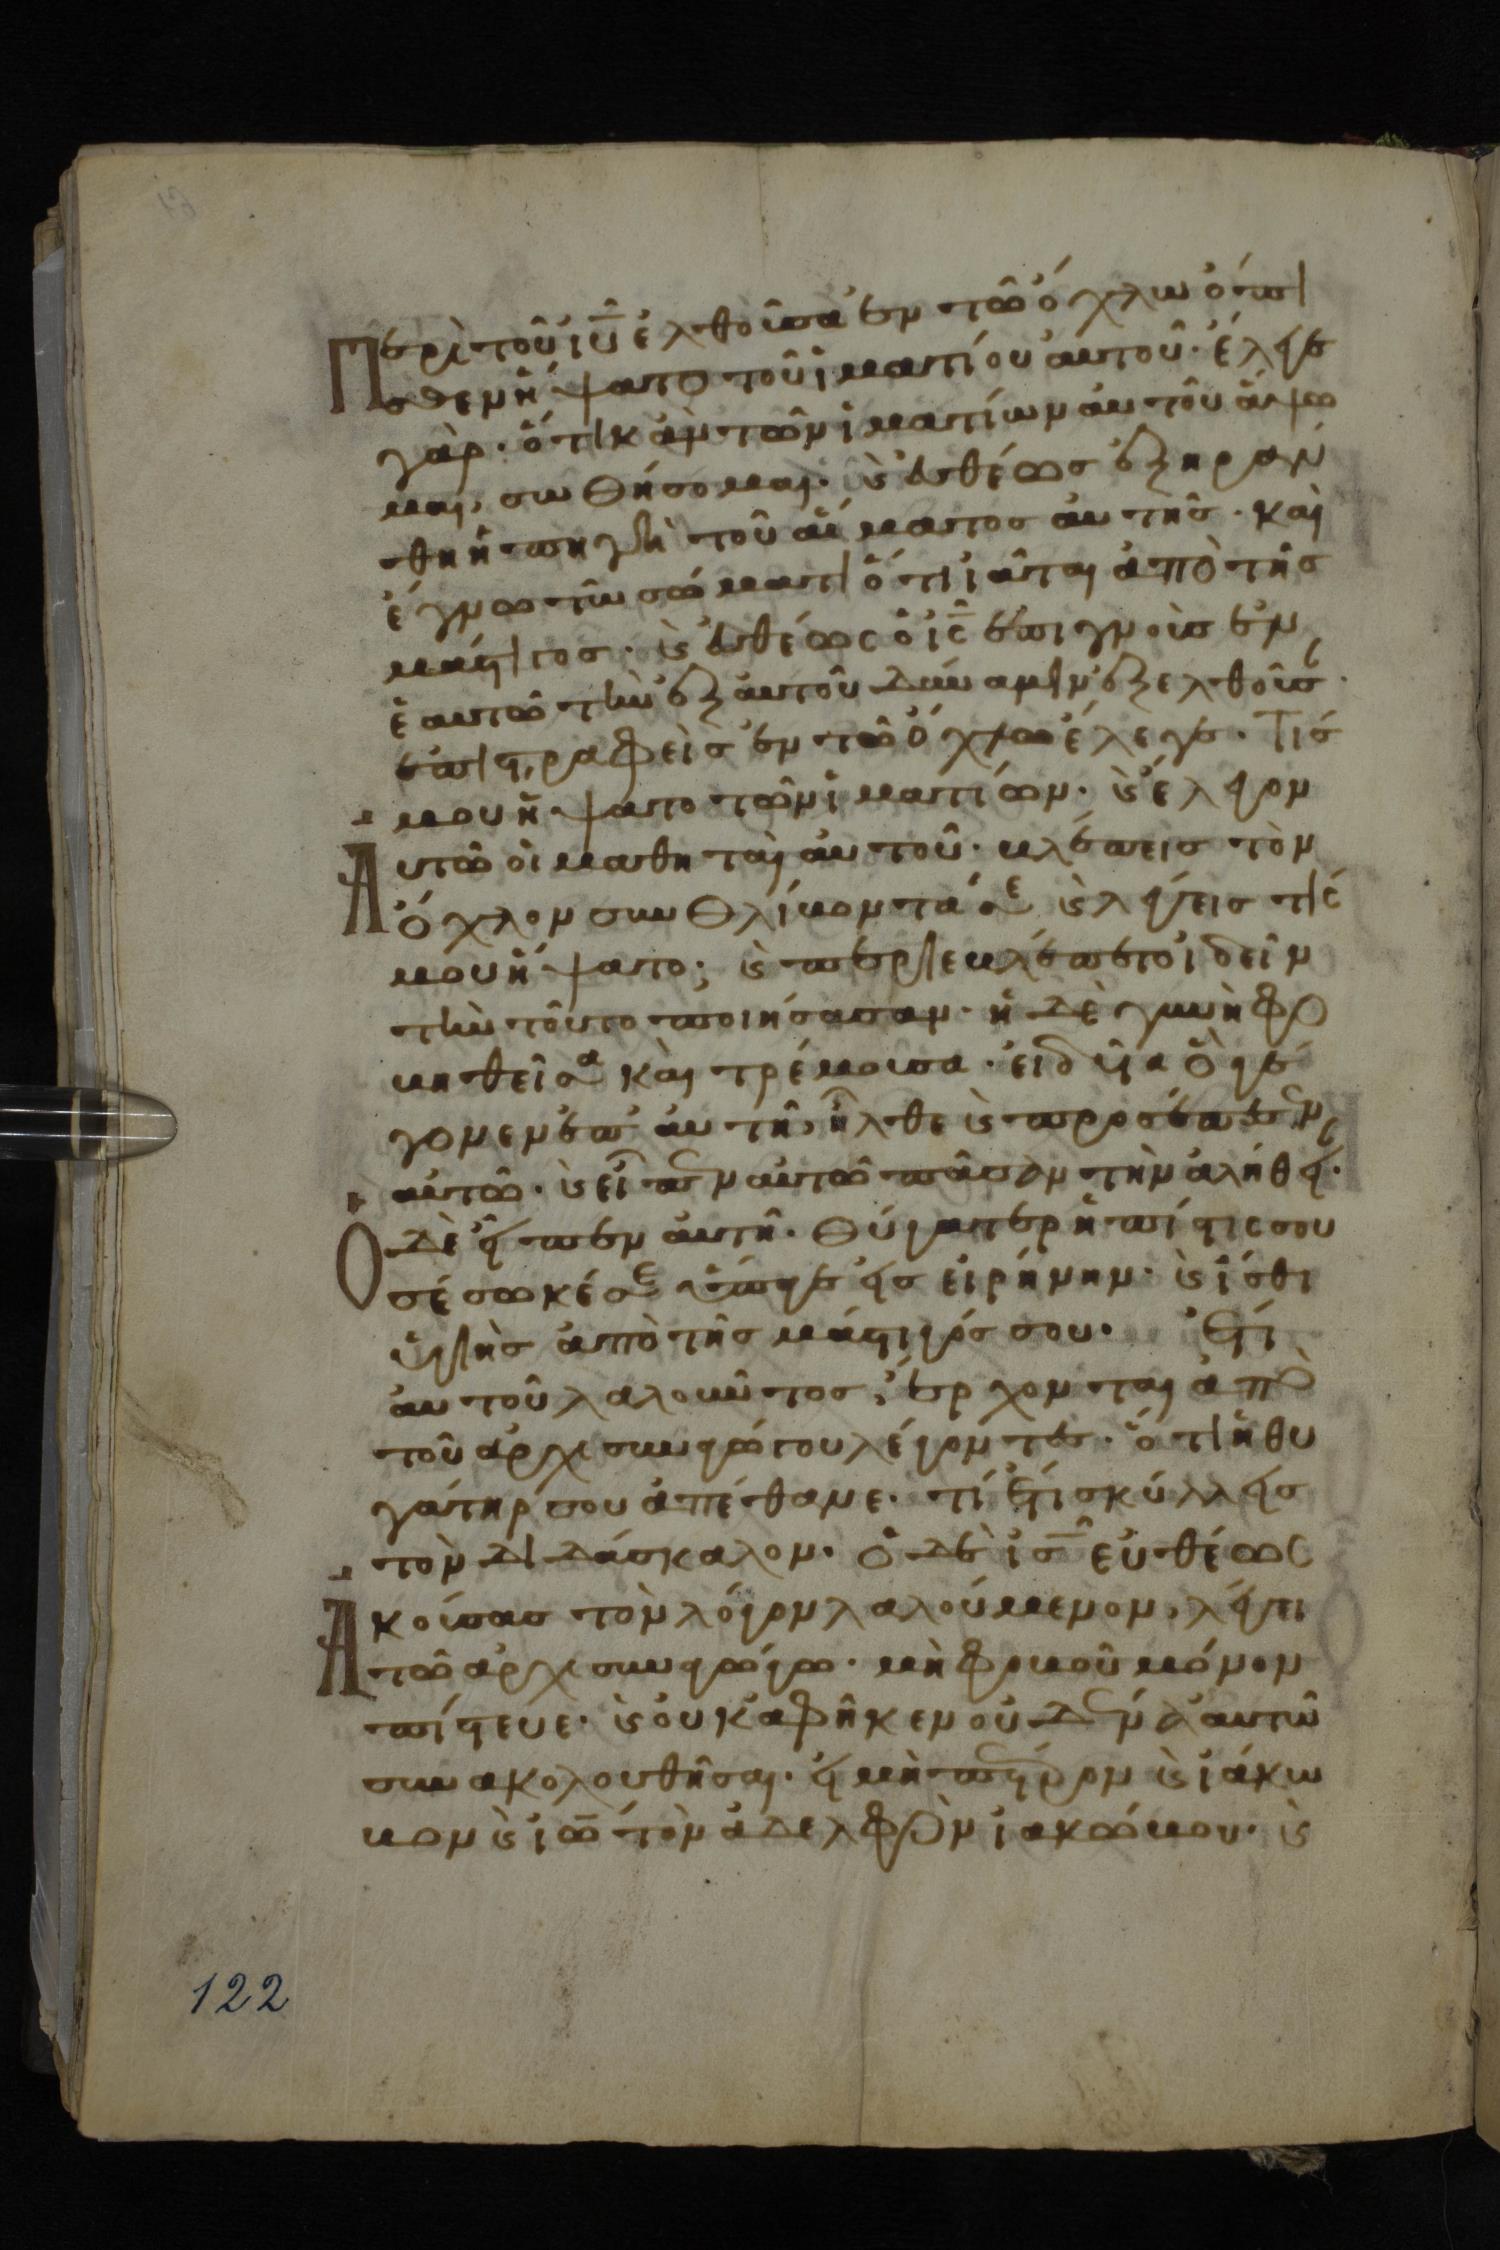 περὶ τοῦ ἰῦ ἐλθοῦσα ἐν τῶ ὄχλω ὄπι
σθεν ἥψατο τοῦ ἱματίου αὐτοῦ· ἔλεγε
γὰρ· ὅτι κἂν τῶν ἱματίων αὐτοῦ ἅψω
μαι, σωθήσομαι· ϗ εὐθέως ἐξηράν
θη ἡ πηγὴ τοῦ αἵματος αὐτῆς· καὶ
ἔγνω τῶ σώματι ὅτι ἰᾶται ἀπὸ τῆς
μάστιγος· ϗ εὐθέως ὁ ἰς ἐπιγνοὺς ἐν
ἑαυτῶ τὴν ἐξ αὐτοῦ δύναμιν ἐξελθοῦσ
ἐπιστραφεὶς ἐν τῶ ὄχλω ἔλεγε· Τίς
μου ἥψατο τῶν ἱματίων· ϗ ἔλεγον
Αυτῶ οἱ μαθηταὶ αὐτοῦ· βλέπεις τὸν
ὄχλον συνθλίβοντά σε ϗ λέγεις τίς
μου ἥψατο; ϗ περιεβλέπετο ἰδεῖν
τὴν τοῦτο ποιήσασαν· ἡ δὲ γυνὴ φο
βηθεῖσα καὶ τρέμουσα· εἰδυῖα ὃ γέ
γονεν ἐπ αὐτῆ, ἦλθε ϗ προσέπεσεν
αὐτῶ· ϗ εἶπεν αὐτῶ πᾶσαν τὴν ἀλήθει·
Ο δὲ εἶπεν αὐτῆ· Θύγατερ ἡ πίστις σου
σέσωκέ σε ὕπαγε εἰς εἰρήνην· ϗ ἴσθι
ὑγιὴς ἀπὸ τῆς μάστιγός σου· Ἔτι
αὐτοῦ λαλοῦντος, ἔρχονται ἀπὸ
τοῦ ἀρχισυναγώγου λέγοντες· ὅτι ἡ θυ
γάτηρ σου ἀπέθανε· τί ἔτι σκύλλεις
τὸν διδάσκαλον· ὁ δὲ ἰς εὐθέως
Ακούσας τὸν λόγον λαλούμενον, λέγει
τῶ ἀρχισυναγώγω· μὴ φοβοῦ μόνον
πίστευε· ϗ οὐκ ἀφῆκεν οὐδένα αὐτῶ
συνακολουθῆσαι· εἰ μὴ πέτρον ϗ ἰάκω
βον ϗ ἰῶ τὸν ἀδελφὸν ἰακώβου· ϗ
122